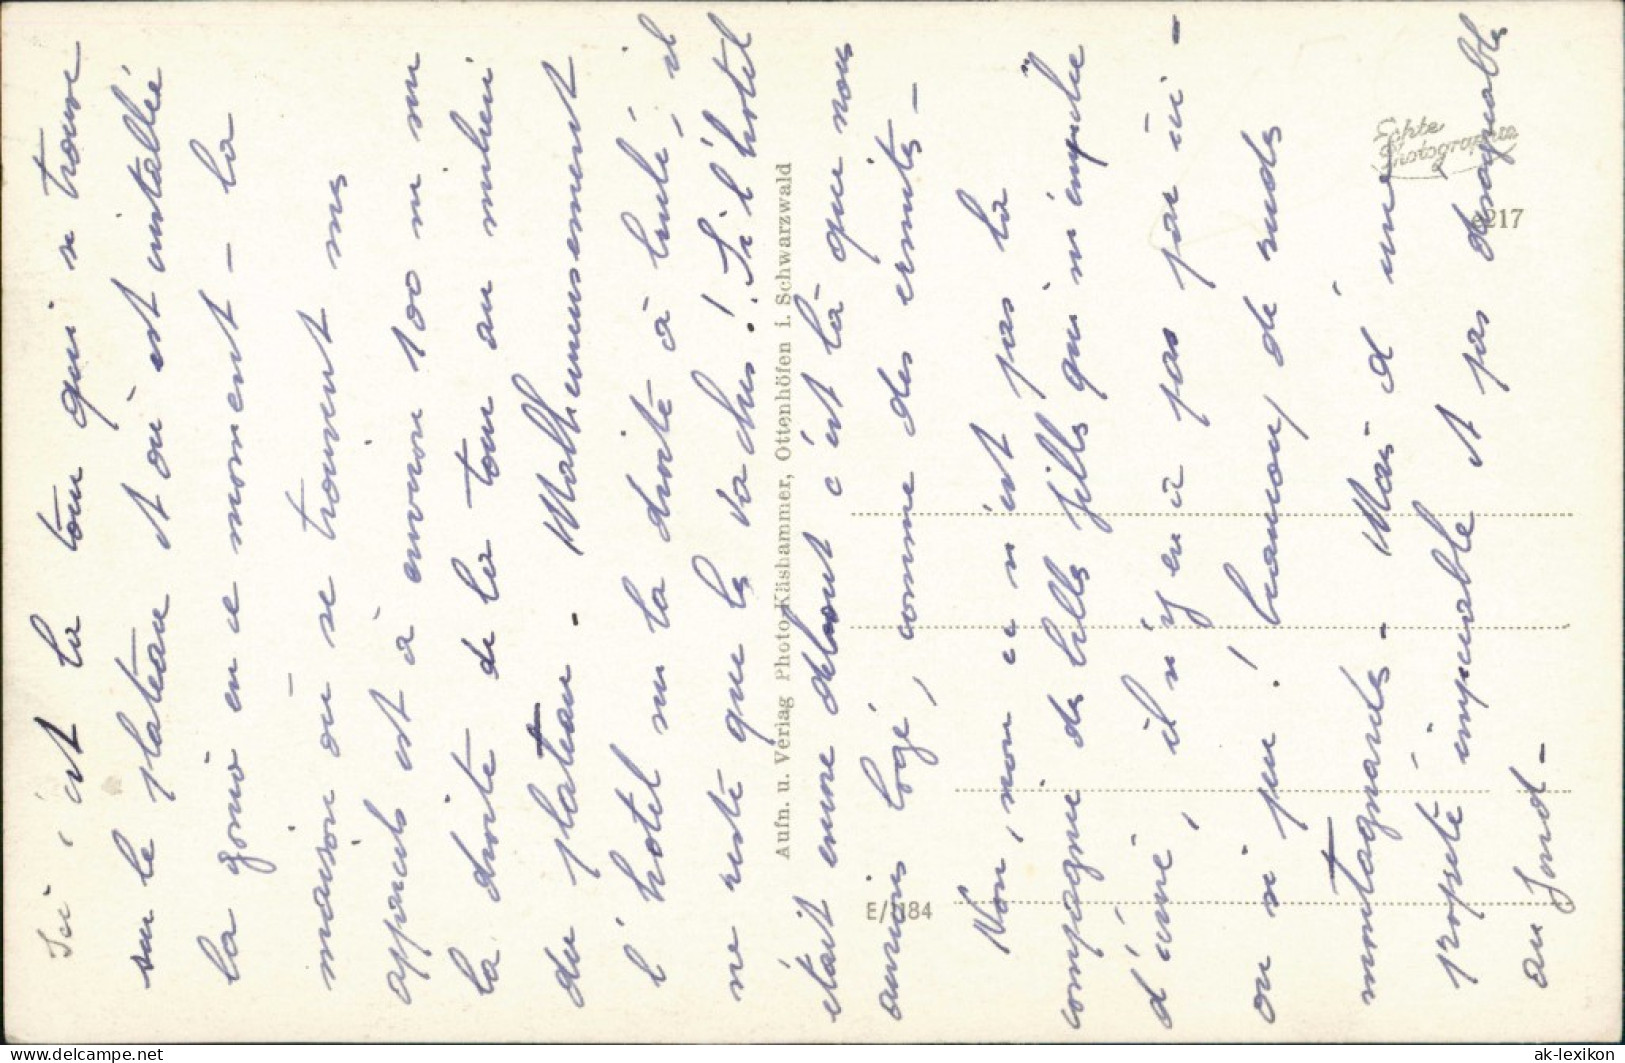 Ici c'est la tour qui se trouve
sur le plateau et où est installée
la gonio en ce moment - la
maison où se trouvent nos
appareils est à environ 100 m sur
la droite de la tour au milieu
du plateau. Malheureusement
l'hotel sur la droite à brulé, il
ne reste que les vaches! Si l'hotel
était encore debout c'est là que nous
aurions logé, comme des ermites -
Non, mon ce n'est pas la
compagnie des belles filles qui m'empêche
d'
, il n'y en a pas par ici -
ou si peu! beaucoup de rudes
montagnardes - Mais d'une
propreté impeccable et pas désagréables
au fond -
Aufn. u. Verlag Photo-Käshammer, Ottenhöfen i. Schwarzwald
E/1184
Echte Photographie
217
www.ansichtskarten-lexikon.de
ak-lexikon